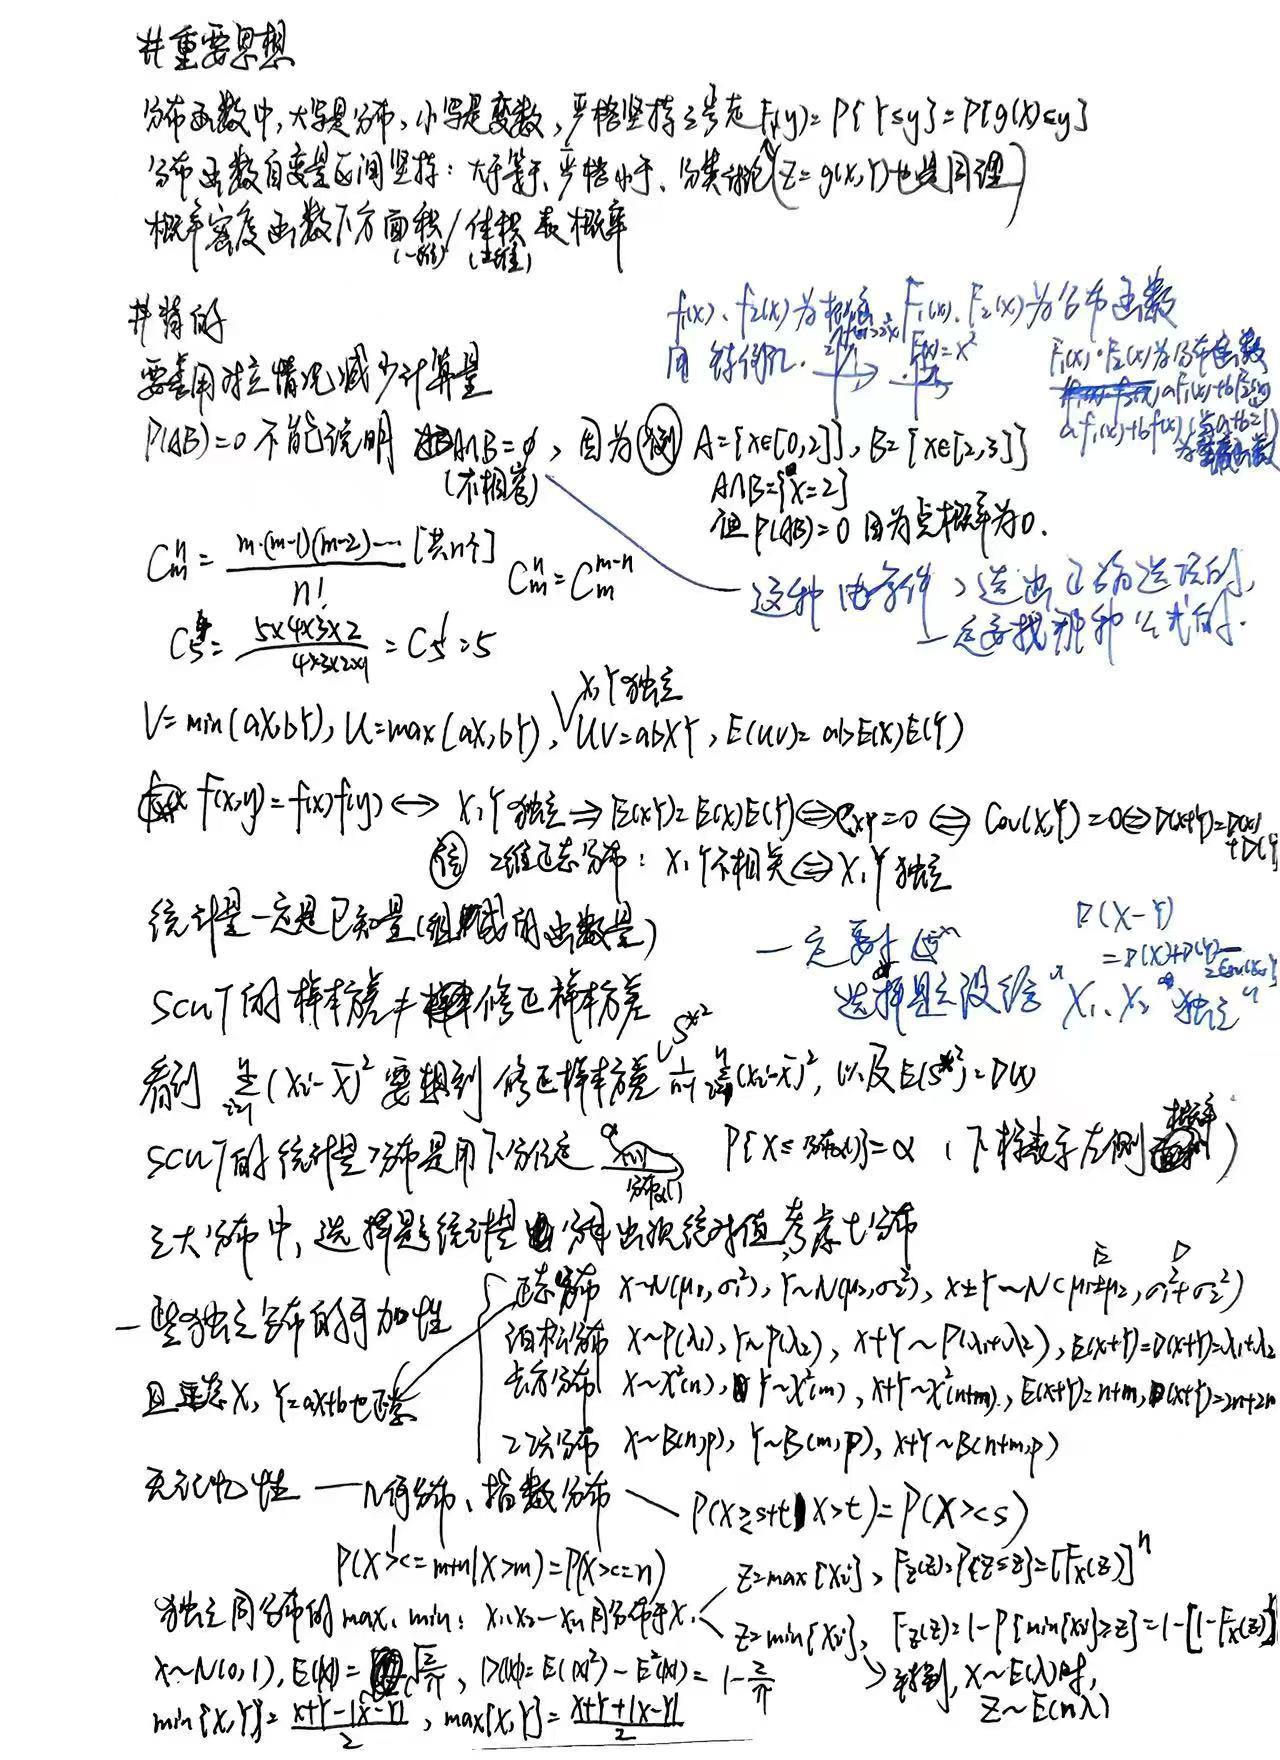 #重要思想
分布函数中,大写是分布,小写是变数,严格坚持 F(y)=P{Y≤y}=P{g(X)≤y}
分布函数自变量区间坚持:大于等于、严格小于、分类讨论(Z=g(X,Y)也是同理)
概率密度函数下方面积/体积表概率
(一维) (二维)
#猜的
f₁(x)、f₂(x)为 F₁(x)、F₂(x)为分布函数
用特例 F(x)=x²
F₁(x)·F₂(x)为分布函数
aF₁(x)+bF₂(x)
af₁(x)+bf(x) (a+b=1)
为 函数
要善用对立情况减少计算量
P(AB)=0 不能说明 A∩B=∅, 因为 例 A={x∈[0,2]}, B={x∈[2,3]}
(不相容) A∩B={x=2}
但 P(AB)=0 因为点概率为0.
这种由条件 选出正确选项的,
一定要找那种公式的.
C_m^n = m·(m-1)(m-2)…[共n个] / n! C_m^n=C_m^{m-n}
C_5^4= 5×4×3×2 / 4×3×2×1 = C_5^1=5
X,Y独立
V=min(aX,bY), U=max(aX,bY), UV=abXY, E(UV)=abE(X)E(Y)
f(x,y)=f(x)f(y) ⟷ X,Y独立 ⇒ E(XY)=E(X)E(Y) ⟺ρ_XY=0 ⟺ Cov(X,Y)=0⟺D(X+Y)=D(X)+D(Y)
注 2维正态分布: X,Y不相关⟺X,Y独立
统计量一定是已知量(组成的函数量)
D(X-Y)
=D(X)+D(Y)-2Cov(X,Y)
一定要注意
选择题之没给"X₁、X₂ 独立"
SCUT的样本方差≠修正样本方差
看到 Σ_{i=1}^n (Xi-X̄)² 要想到 修正样本方差 S*² 1/(n-1) Σ_{i=1}^n (Xi-X̄)², 以及E(S*²)=D(X)
SCUT的统计量分布是用下分位 α P{X≤分布α()}=α (下标表示左侧概率)
三大分布中,选择题统计量 出现绝对值考虑t分布
一些独立分布的可加性
且正态X, Y=aX+b也正态
正态分布 X~N(μ₁,σ₁²), Y~N(μ₂,σ₂²), X±Y~N(μ₁±μ₂,σ₁²+σ₂²) E D
泊松分布 X~P(λ₁), Y~P(λ₂), X+Y~P(λ₁+λ₂), E(X+Y)=D(X+Y)=λ₁+λ₂
卡方分布 X~χ²(n), Y~χ²(m), X+Y~χ²(n+m), E(X+Y)=n+m, D(X+Y)=2n+2m
二项分布 X~B(n,p), Y~B(m,p), X+Y~B(n+m,p)
无记忆性 — 几何分布、指数分布 — P(X≥s+t|X>t)=P(X><s)
P(X><=m+n|X>m)=P(X><=n)
独立同分布的max、min: X₁,X₂…Xn同分布于X
Z=max{Xi}, F_Z(z)=P{Z≤z}=[F_X(z)]^n
Z=min{Xi}, F_Z(z)=1-P{min{Xi}≥z}=1-[1-F_X(z)]^n
特别, X~E(λ)时,
Z~E(nλ)
X~N(0,1), E|X|=√(2/π), D|X|=E(|X|²)-E²|X|=1-2/π
min{X,Y}=X+Y-|X-Y| / 2, max{X,Y}=X+Y+|X-Y| / 2